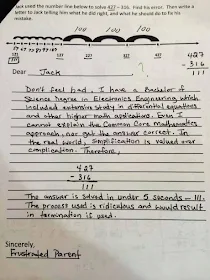 Jack used the number line below to solve 427 - 316. Find his error. Then write a
letter to Jack telling him what he did right, and what he should do to fix his
mistake.
100 100 100
127 227 327 427
427
- 316
111
Dear Jack
?
Don't feel bad. I have a Bachelor of
Science Degree in Electronics Engineering which
included extensive study in differential equations
and other higher math applications. Even I
cannot explain the Common Core mathematics
approach, nor get the answer correct. In
the real world, simplification is valued over
complication. Therefore,
427
- 316
111
The answer is solved in under 5 seconds — 111.
The process used is ridiculous and would result
in termination if used.
Sincerely,
Frustrated Parent